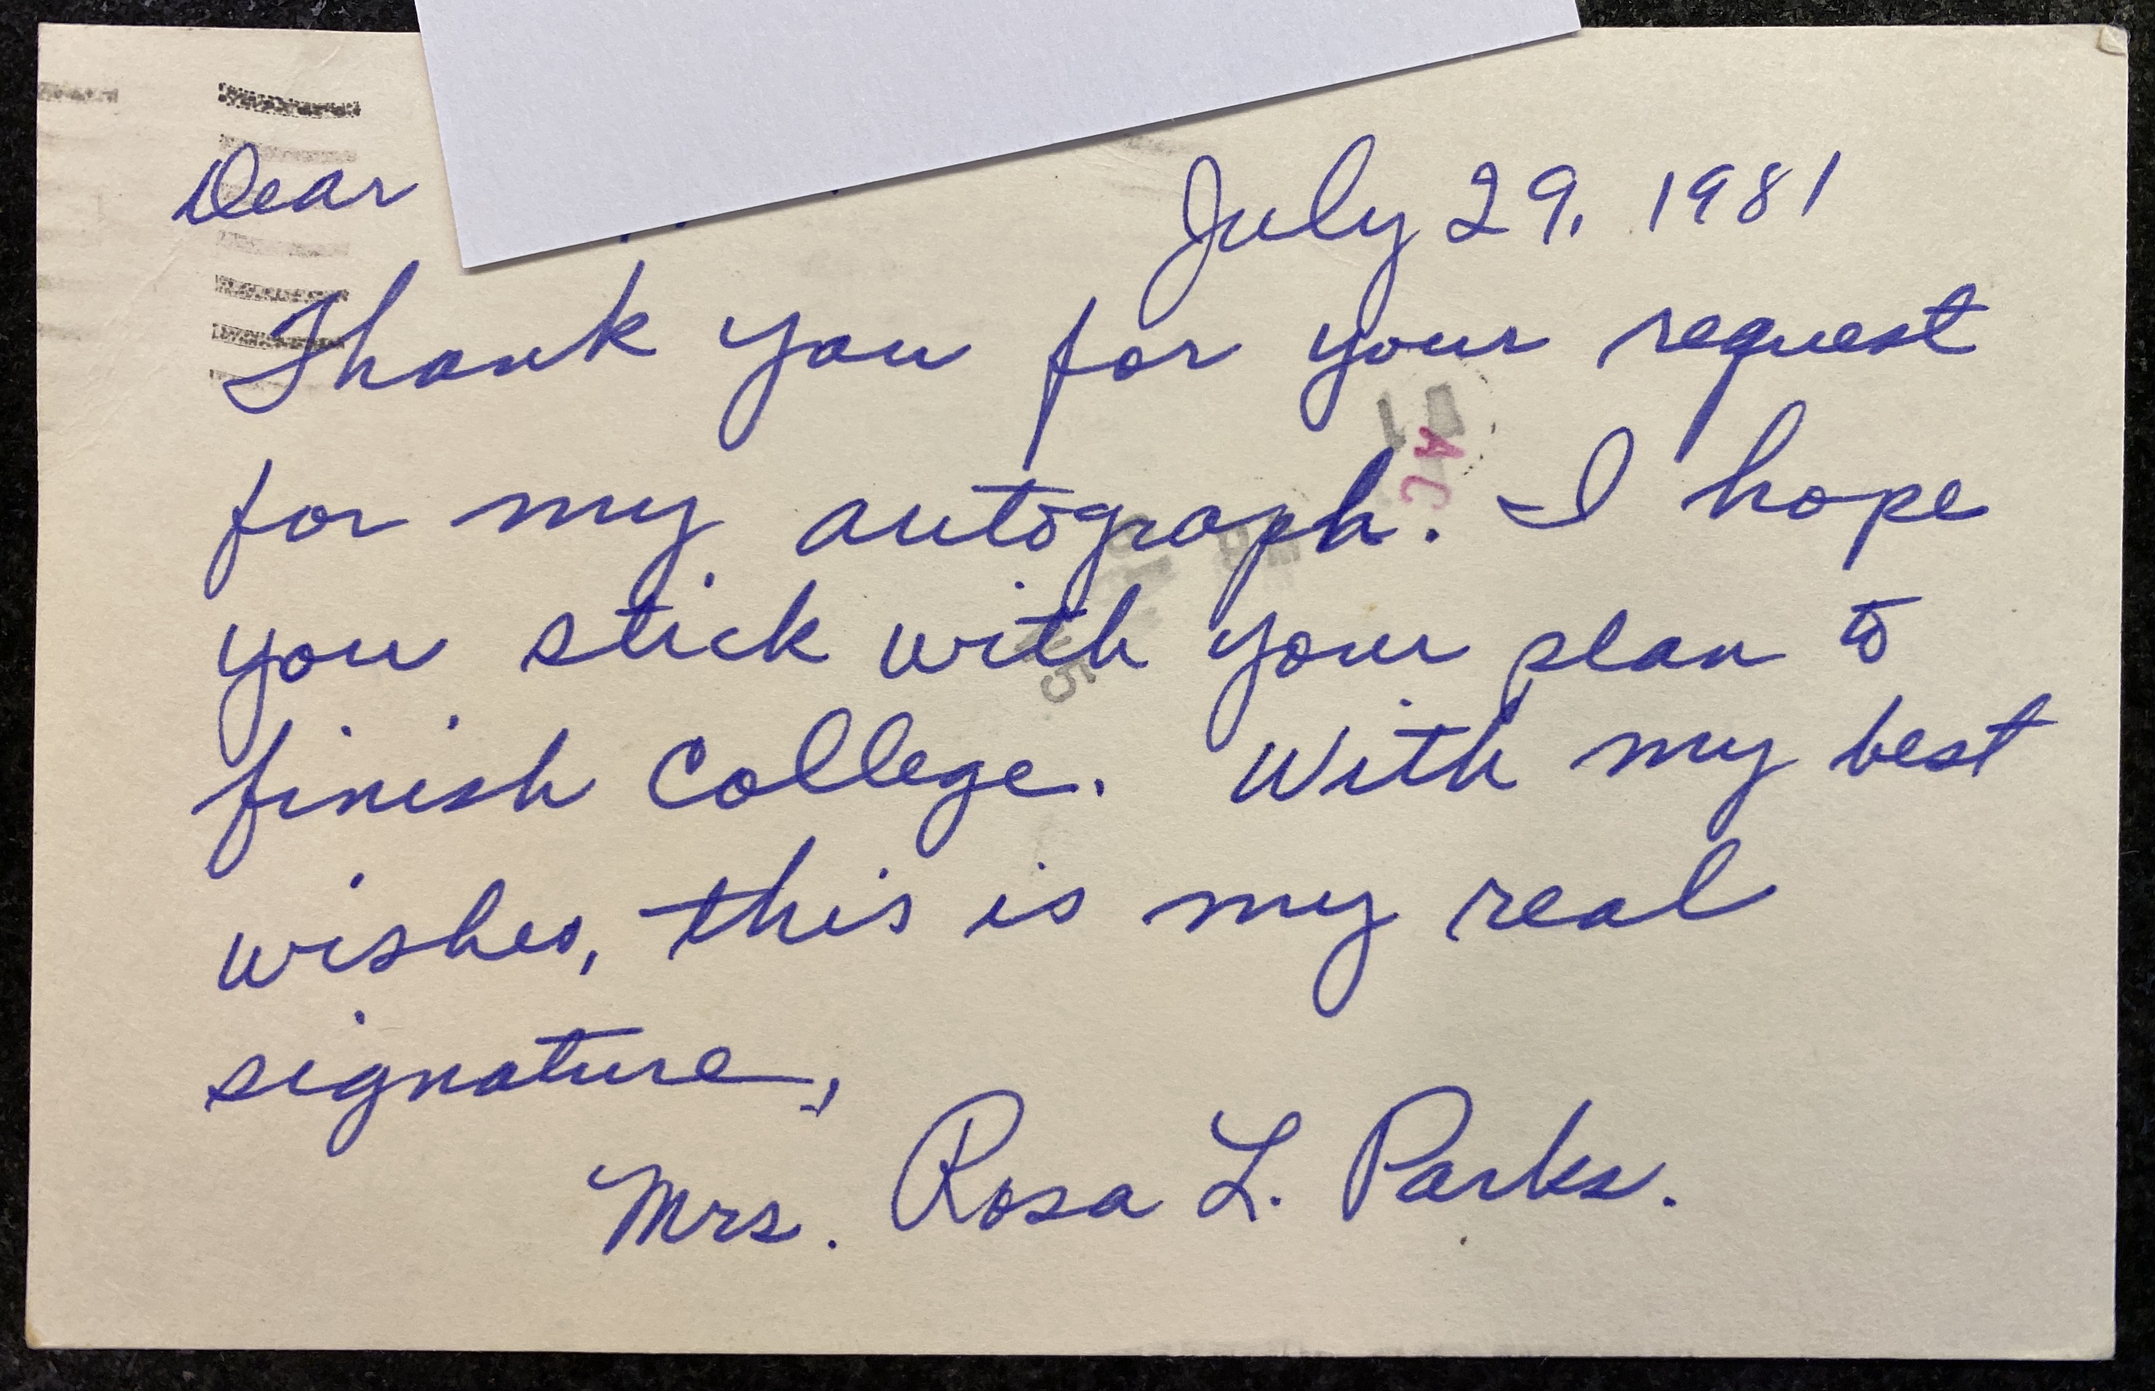 Dear
July 29, 1981
Thank you for your request
for my autograph. I hope
you stick with your plan to
finish College. With my best
wishes, this is my real
signature,
Mrs. Rosa L. Parks.